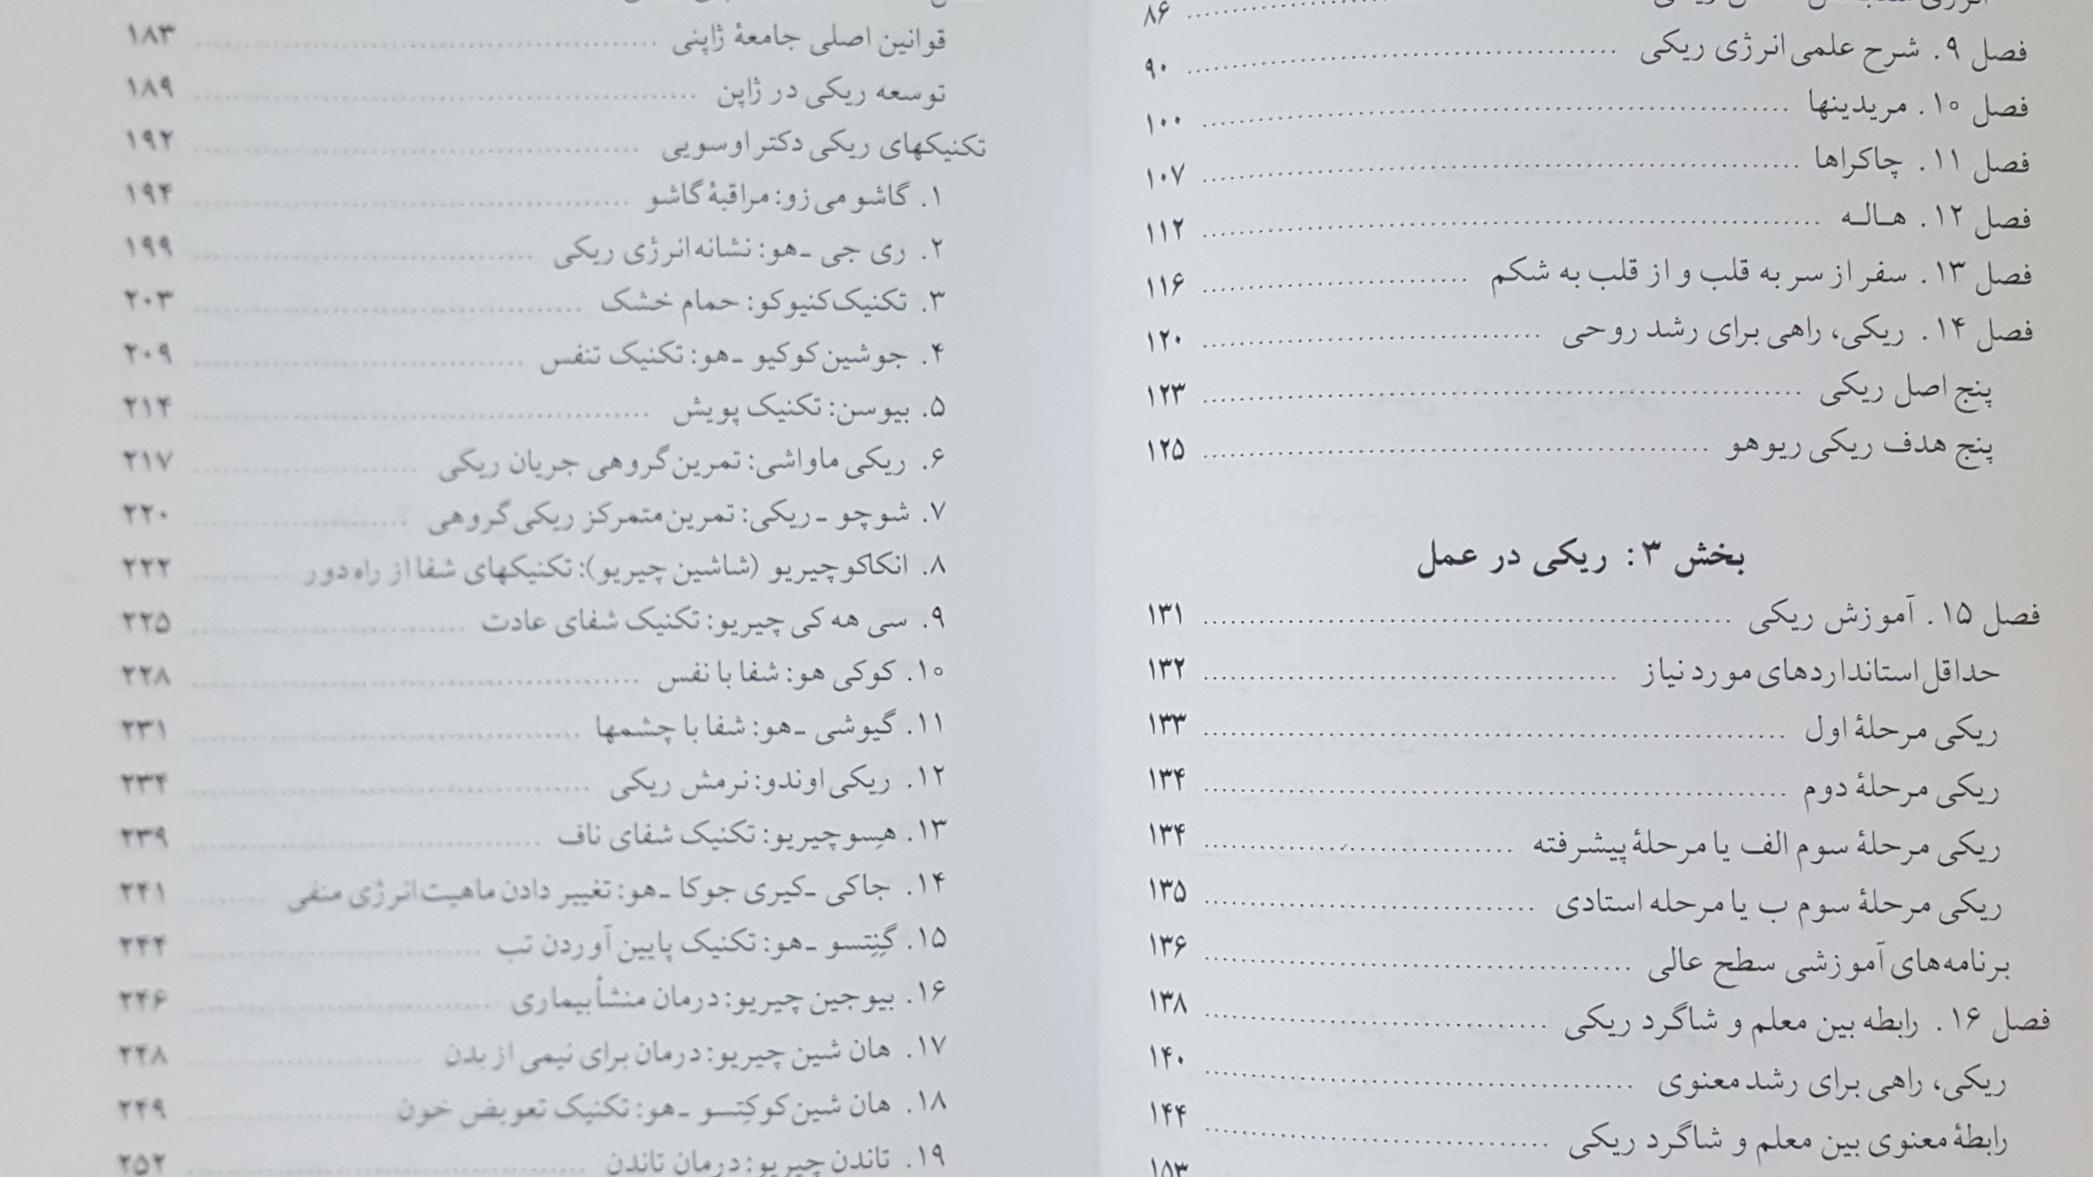 ۸۶
فصل ۹. شرح علمی انرژی ریکی ۹۰
فصل ۱۰. مریدینها ۱۰۰
فصل ۱۱. چاکراها ۱۰۷
فصل ۱۲. هـالـه ۱۱۲
فصل ۱۳. سفر از سر به قلب و از قلب به شکم ۱۱۶
فصل ۱۴. ریکی، راهی برای رشد روحی ۱۲۰
پنج اصل ریکی ۱۲۳
پنج هدف ریکی ریوهو ۱۲۵
بخش ۳: ریکی در عمل
فصل ۱۵. آموزش ریکی ۱۳۱
حداقل استانداردهای مورد نیاز ۱۳۲
ریکی مرحلهٔ اول ۱۳۳
ریکی مرحلهٔ دوم ۱۳۴
ریکی مرحلهٔ سوم الف یا مرحلهٔ پیشرفته ۱۳۴
ریکی مرحلهٔ سوم ب یا مرحله استادی ۱۳۵
برنامه‌های آموزشی سطح عالی ۱۳۶
فصل ۱۶. رابطه بین معلم و شاگرد ریکی ۱۳۸
ریکی، راهی برای رشد معنوی ۱۴۰
رابطهٔ معنوی بین معلم و شاگرد ریکی ۱۴۴
۱۵۳
قوانین اصلی جامعهٔ ژاپنی ۱۸۳
توسعه ریکی در ژاپن ۱۸۹
تکنیکهای ریکی دکتر اوسویی ۱۹۲
۱. گاشو می زو: مراقبهٔ گاشو ۱۹۴
۲. ری جی ـ هو: نشانه انرژی ریکی ۱۹۹
۳. تکنیک کنیوکو: حمام خشک ۲۰۳
۴. جوشین کوکیو ـ هو: تکنیک تنفس ۲۰۹
۵. بیوسن: تکنیک پویش ۲۱۴
۶. ریکی ماواشی: تمرین گروهی جریان ریکی ۲۱۷
۷. شوچو ـ ریکی: تمرین متمرکز ریکی گروهی ۲۲۰
۸. انکاکو چیریو (شاشین چیریو): تکنیکهای شفا از راه دور ۲۲۲
۹. سی هه کی چیریو: تکنیک شفای عادت ۲۲۵
۱۰. کوکی هو: شفا با نفس ۲۲۸
۱۱. گیوشی ـ هو: شفا با چشمها ۲۳۱
۱۲. ریکی اوندو: نرمش ریکی ۲۳۴
۱۳. هِسو چیریو: تکنیک شفای ناف ۲۳۹
۱۴. جاکی ـ کیری جوکا ـ هو: تغییر دادن ماهیت انرژی منفی ۲۴۱
۱۵. گِنِتسو ـ هو: تکنیک پایین آوردن تب ۲۴۴
۱۶. بیوجین چیریو: درمان منشأ بیماری ۲۴۶
۱۷. هان شین چیریو: درمان برای نیمی از بدن ۲۴۸
۱۸. هان شین کوکِتسو ـ هو: تکنیک تعویض خون ۲۴۹
۱۹. تاندن چیریو: درمان تاندن ۲۵۲